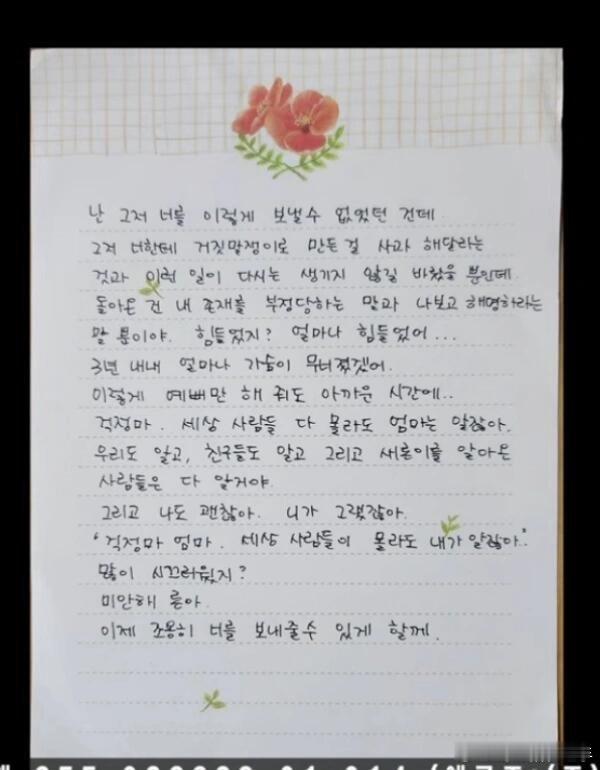 난 그저 너를 이렇게 보낼수 없었던 건데
그저 너한테 거짓말쟁이로 만든걸 사과 해달라는
것과 이런 일이 다시는 생기지 않길 바랬을 뿐인데.
돌아온 건 내 존재를 부정당하는 말과 나보고 해명하라는
말 뿐이야. 힘들었지? 얼마나 힘들었어...
3년 내내 얼마나 가슴이 무너졌겠어.
이렇게 예뻐만 해 줘도 아까운 시간에..
걱정마. 세상 사람들 다 몰라도 엄마는 알잖아.
우리도 알고, 친구들도 알고 그리고 새론이를 알아온
사람들은 다 알거야.
그리고 나도 괜찮아. 니가 그랬잖아.
"걱정마 엄마. 세상 사람들이 몰라도 내가 알잖아."
많이 시끄러웠지?
미안해 론아.
이제 조용히 너를 보내줄수 있게 할께.